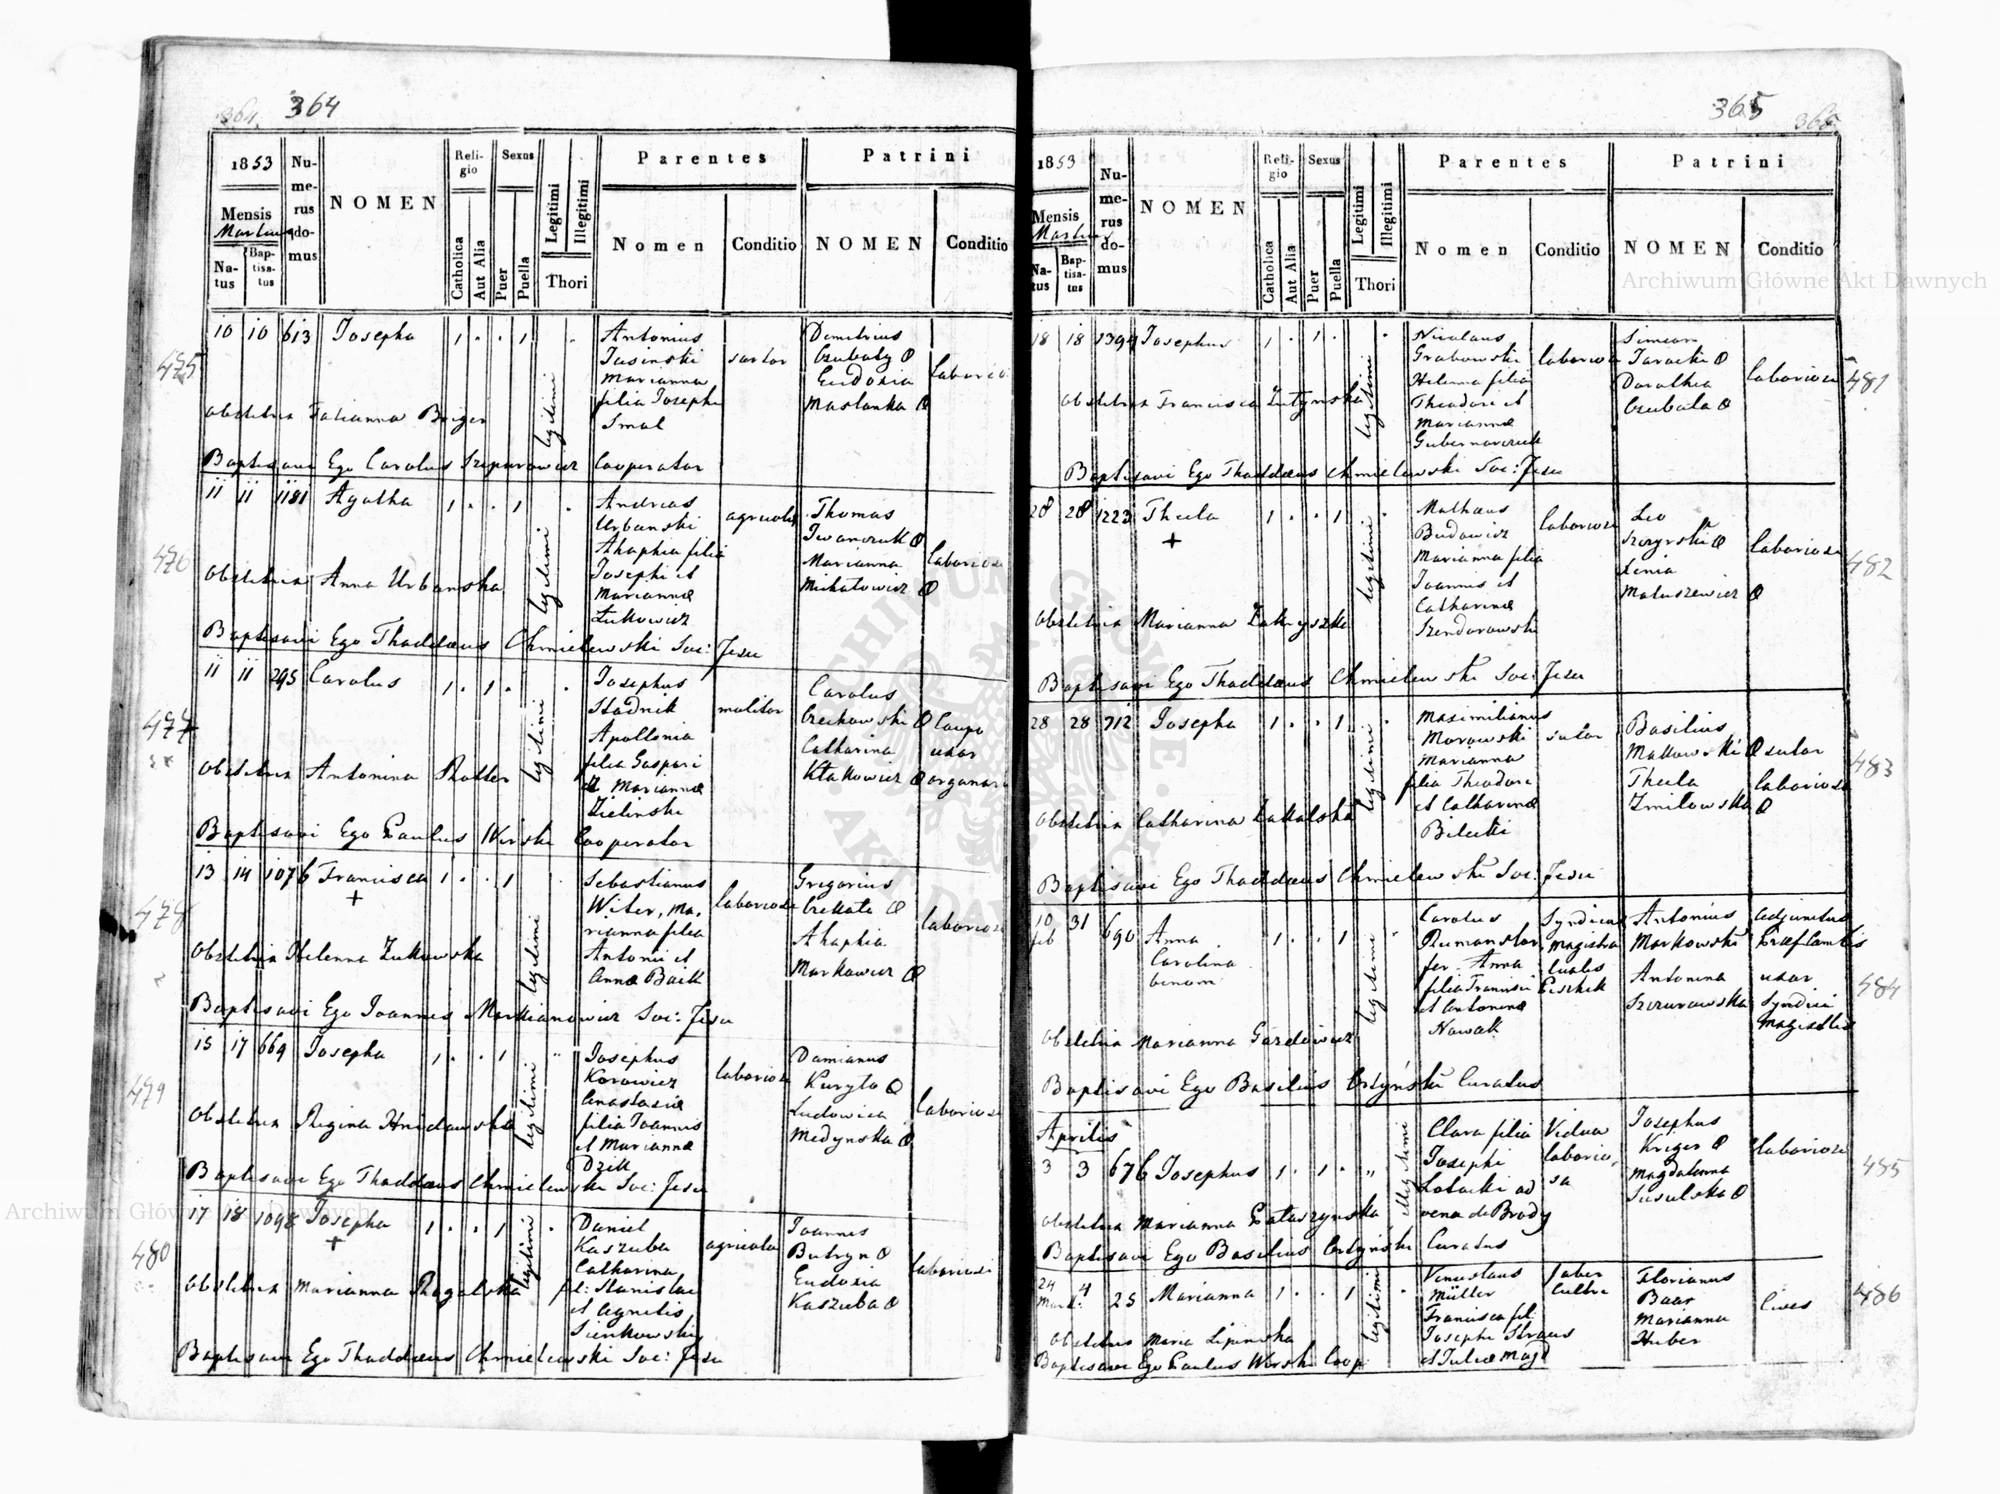 364
1853
Numerus domus
NOMEN
Religio
Sexus
Legitimi
Illegitimi
Parentes
Patrini
Mensis
Martius
Natus
Baptisatus
Catholica
Aut Alia
Puer
Puella
Thori
Nomen
Conditio
NOMEN
Conditio
475
10 10 613 Josepha 1 . . 1 .
legitimi
Antonius
Jasinski
Marianna
filia Josephi
Smal
sartor
Demitrius
Czubaty
Eudoxia
Maslanka
laboriosi
Obstetrix Tatianna Berger
Baptisavi Ego Carolus Szypurowicz Cooperator
476
11 11 1181 Agatha 1 . . 1 .
legitimi
Andreas
Urbanski
Ahaphia filia
Josephi et
Mariannæ
Łukowicz
agricola
Thomas
Iwanczuk
Marianna
Michałowicz
laboriosi
Obstetrix Anna Urbanska
Baptisavi Ego Thaddæus Chmielewski Soc: Jesu
477
11 11 295 Carolus 1 . 1 . .
legitimi
Josephus
Stadnik
Apollonia
filia Gaspari
et Mariannæ
Zielinski
molitor
Carolus
Czechowski
Catharina
Kłakowicz
Caupo
uxor
organarii
Obstetrix Antonina Rotter
Baptisavi Ego Paulus Werski Cooperator
478
13 14 1076 Francisca 1 . . 1
+
legitimi
Sebastianus
Witer, Ma-
rianna filia
Antonii et
Annæ Baik
laboriosi
Gregorius
Czekała
Ahaphia
Markowicz
laboriosi
Obstetrix Helenna Zukowska
Baptisavi Ego Joannes Markianowicz Soc: Jesu
479
15 17 669 Josepha 1 . . 1 "
legitimi
Josephus
Korowicz
Anastasia
filia Joannis
et Mariannæ
Dzik
laboriosi
Damianus
Kuryło
Ludovica
Medynska
laboriosi
Obstetrix Regina Hnidawska
Baptisavi Ego Thaddæus Chmielewski Soc: Jesu
480
17 18 1098 Josepha 1 . . 1 .
+
legitimi
Daniel
Kaszuba
Catharina
fil: Stanislai
et Agnetis
Sienkowski
agricola
Joannes
Butryn
Eudoxia
Kaszuba
laboriosi
Obstetrix Marianna Rogalska
Baptisavi Ego Thaddæus Chmielewski Soc: Jesu
365
1853
Numerus domus
NOMEN
Religio
Sexus
Legitimi
Illegitimi
Parentes
Patrini
Mensis
Martius
Natus
Baptisatus
Catholica
Aut Alia
Puer
Puella
Thori
Nomen
Conditio
NOMEN
Conditio
Archiwum Główne Akt Dawnych
481
18 18 1394 Josephus 1 . 1 . .
legitimi
Nicolaus
Grabowski
Helenna filia
Theodori et
Mariannæ
Gubernarczuk
laboriosi
Simeon
Taracki
Dorothea
Czubata
laboriosi
Obstetrix Francisca Lutynska
Baptisavi Ego Thaddæus Chmielewski Soc: Jesu
482
28 28 1223 Thecla 1 . . 1 .
+
legitimi
Mathæus
Budowicz
Marianna filia
Joannis et
Catharinæ
Szendorowski
laboriosi
Leo
Szczyrski
Xenia
Matuszewicz
laboriosi
Obstetrix Marianna Zakryszka
Baptisavi Ego Thaddæus Chmielewski Soc: Jesu
483
28 28 712 Josepha 1 . . 1 .
legitimi
Maximilianus
Morowski
Marianna
filia Theodori
et Catharinæ
Bilecki
sutor
Basilius
Malkowski
Thecla
Zmitowska
sutor
laboriosa
Obstetrix Catharina Zakalska
Baptisavi Ego Thaddæus Chmielewski Soc: Jesu
484
10 feb 31 690 Anna
Carolina
binom:
1 . . 1
legitimi
Carolus
Rumanstor
fer Anna
filia Francisci
et Antoninæ
Nowak
Syndicus
magistra
tualis
Antonius
Markowski
Antonina
Szczurowska
adjunctus
uxor
Syndici
magistra
Obstetrix Marianna Gazdowicz
Baptisavi Ego Basilius Ortyński Curatus
485
Aprilis
3 3 676 Josephus 1 . 1 . "
illegitimi
Clara filia
Josephi
Lotocki ad
vena de Brody
Vidua
laborio-
sa
Josephus
Kriger
Magdalenna
Susulska
laboriosi
Obstetrix Marianna Pataszynska
Baptisavi Ego Basilius Ortyński Curatus
486
24 Mart: 4 25 Marianna 1 . . 1 .
legitimi
Venceslaus
Müller
Francisca fil:
Josephi Straus
et Juliæ Majd
faber
cultra
Florianus
Baar
Marianna
Huber
Cives
Obstetrix Maria Lipinska
Baptisavi Ego Paulus Werski Coop:
Archiwum Główne Akt Dawnych
ARCHIWUM GŁÓWNE AKT DAWNYCH